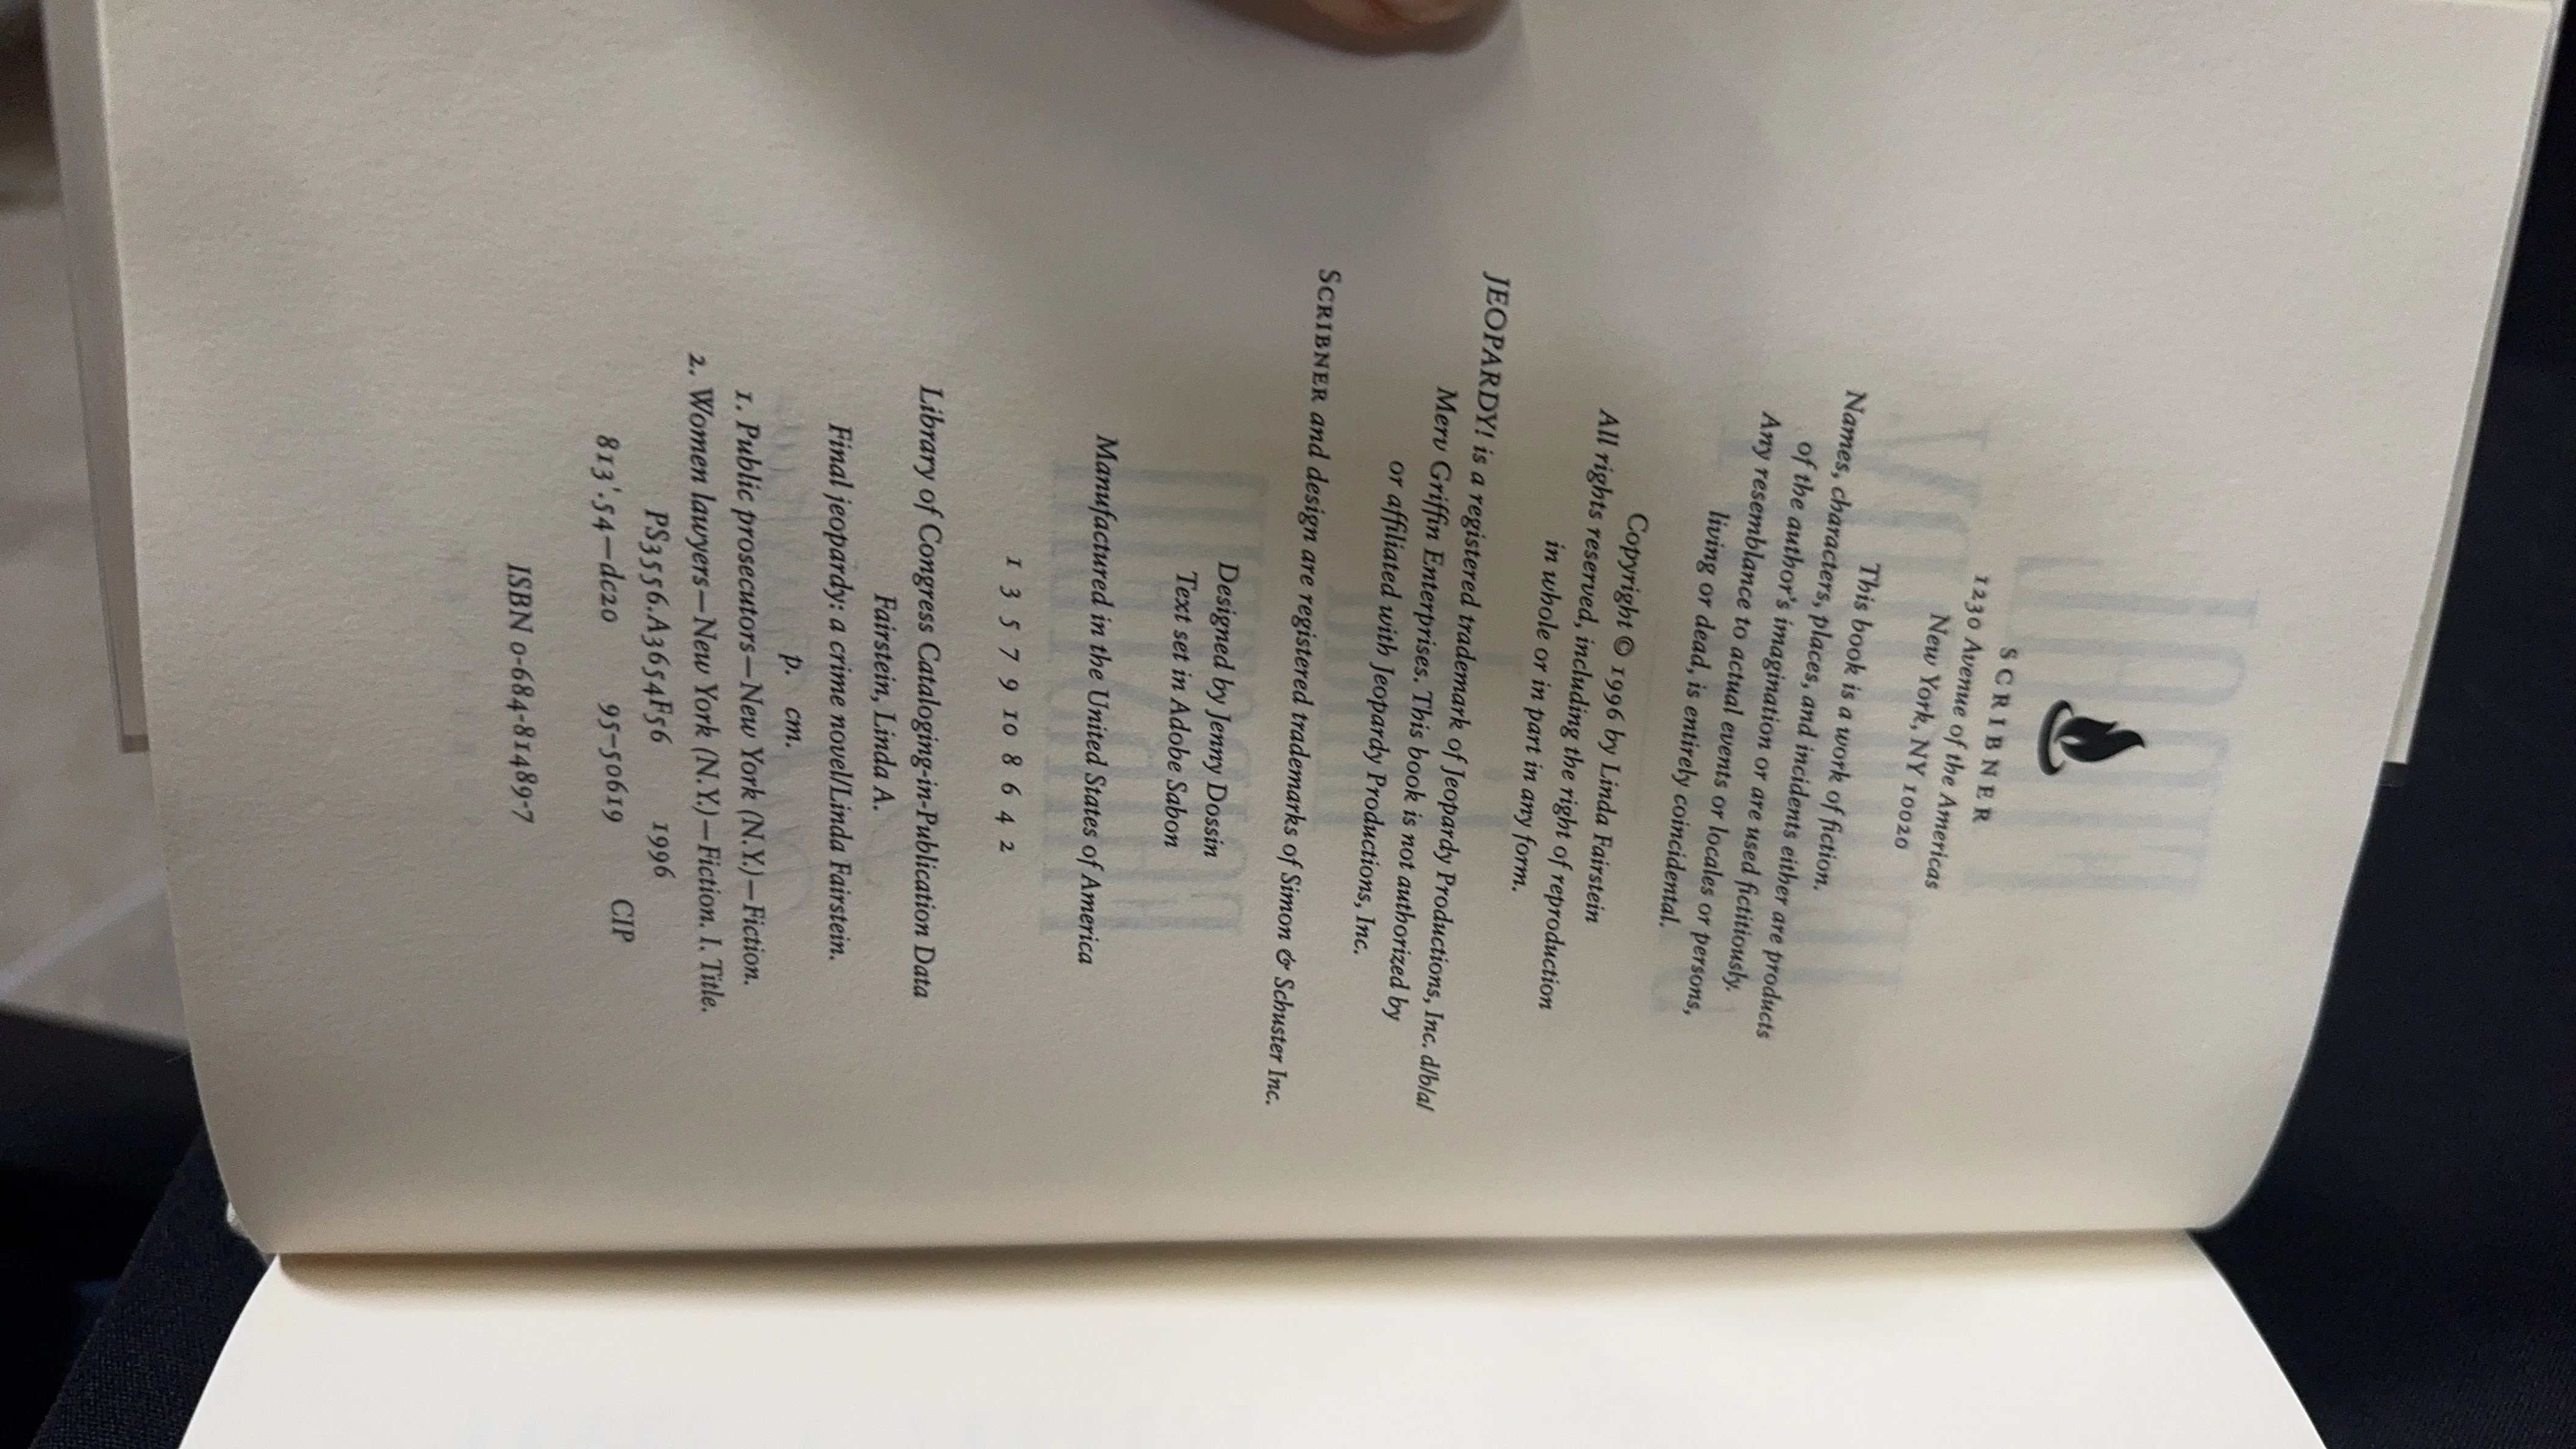 SCRIBNER
1230 Avenue of the Americas
New York, NY 10020
This book is a work of fiction.
Names, characters, places, and incidents either are products
of the author's imagination or are used fictitiously.
Any resemblance to actual events or locales or persons,
living or dead, is entirely coincidental.
Copyright © 1996 by Linda Fairstein
All rights reserved, including the right of reproduction
in whole or in part in any form.
JEOPARDY! is a registered trademark of Jeopardy Productions, Inc. d/b/a/
Merv Griffin Enterprises. This book is not authorized by
or affiliated with Jeopardy Productions, Inc.
SCRIBNER and design are registered trademarks of Simon & Schuster Inc.
Designed by Jenny Dossin
Text set in Adobe Sabon
Manufactured in the United States of America
1 3 5 7 9 10 8 6 4 2
Library of Congress Cataloging-in-Publication Data
Fairstein, Linda A.
Final jeopardy: a crime novel/Linda Fairstein.
p. cm.
1. Public prosecutors—New York (N.Y.)—Fiction.
2. Women lawyers—New York (N.Y.)—Fiction. I. Title.
PS3556.A3654F56 1996
813'.54—dc20 95-50619 CIP
ISBN 0-684-81489-7